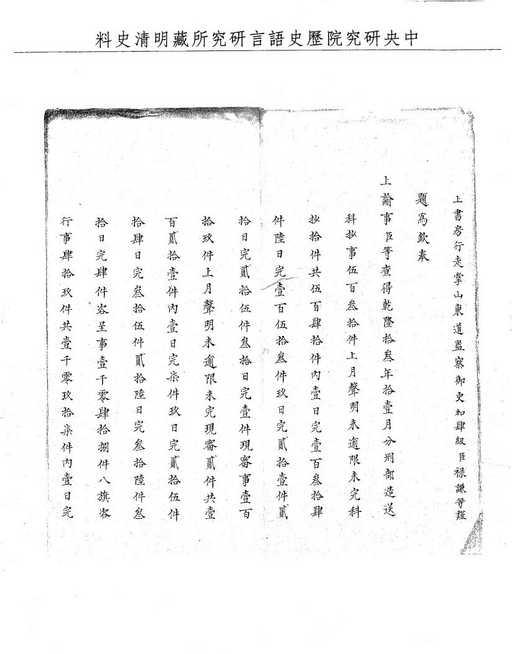 中央研究院歷史語言研究所藏明清史料
上書房行走掌山東道監察御史加肆級臣祿謙等謹
題為欽奉
上諭事臣等查得乾隆拾叁年拾壹月分刑部造送
科抄事伍百叁拾件上月聲明未逾限未完科
抄拾件共伍百肆拾件內壹日完壹百叁拾肆
件陸日完壹百伍拾叁件玖日完貳拾壹件貳
拾日完貳拾伍件叁拾日完壹件現審事壹百
拾玖件上月聲明未逾限未完現審貳件共壹
百貳拾壹件內壹日完柒件玖日完貳拾伍件
拾肆日完叁拾伍件貳拾陸日完叁拾陸件叁
拾日完肆件咨呈事壹千零肆拾捌件八旗咨
行事肆拾玖件共壹千零玖拾柒件內壹日完